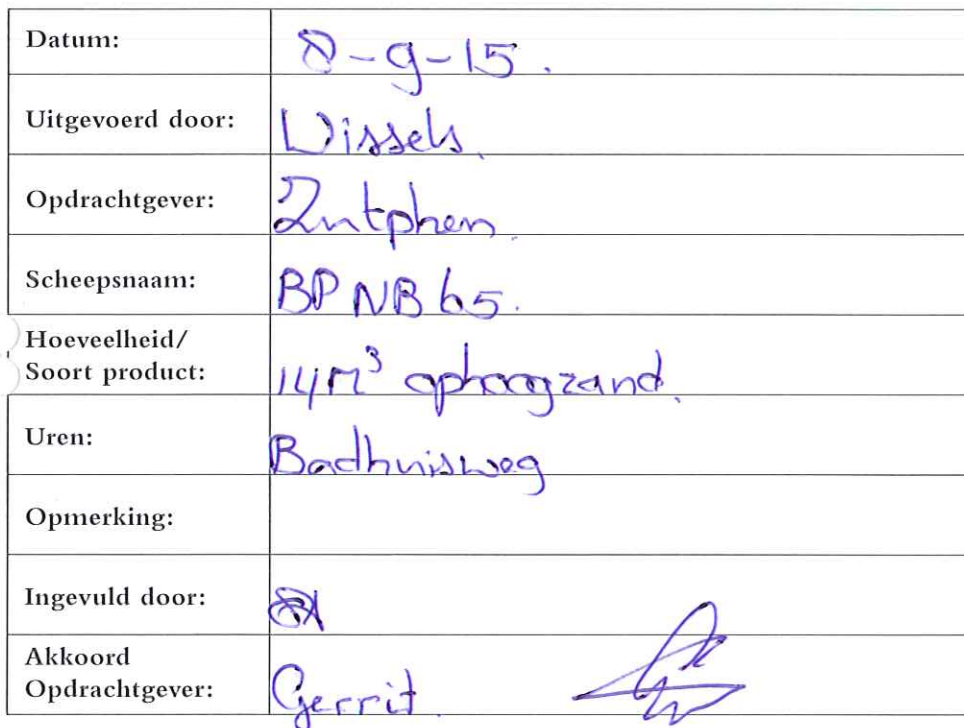 Datum: 8-9-15.
Uitgevoerd door: Wissels.
Opdrachtgever: Zutphen.
Scheepsnaam: BP NB 65.
Hoeveelheid/
Soort product: 14M³ ophoogzand.
Uren: Badhuisweg
Opmerking:
Ingevuld door:
Akkoord
Opdrachtgever: Gerrit.